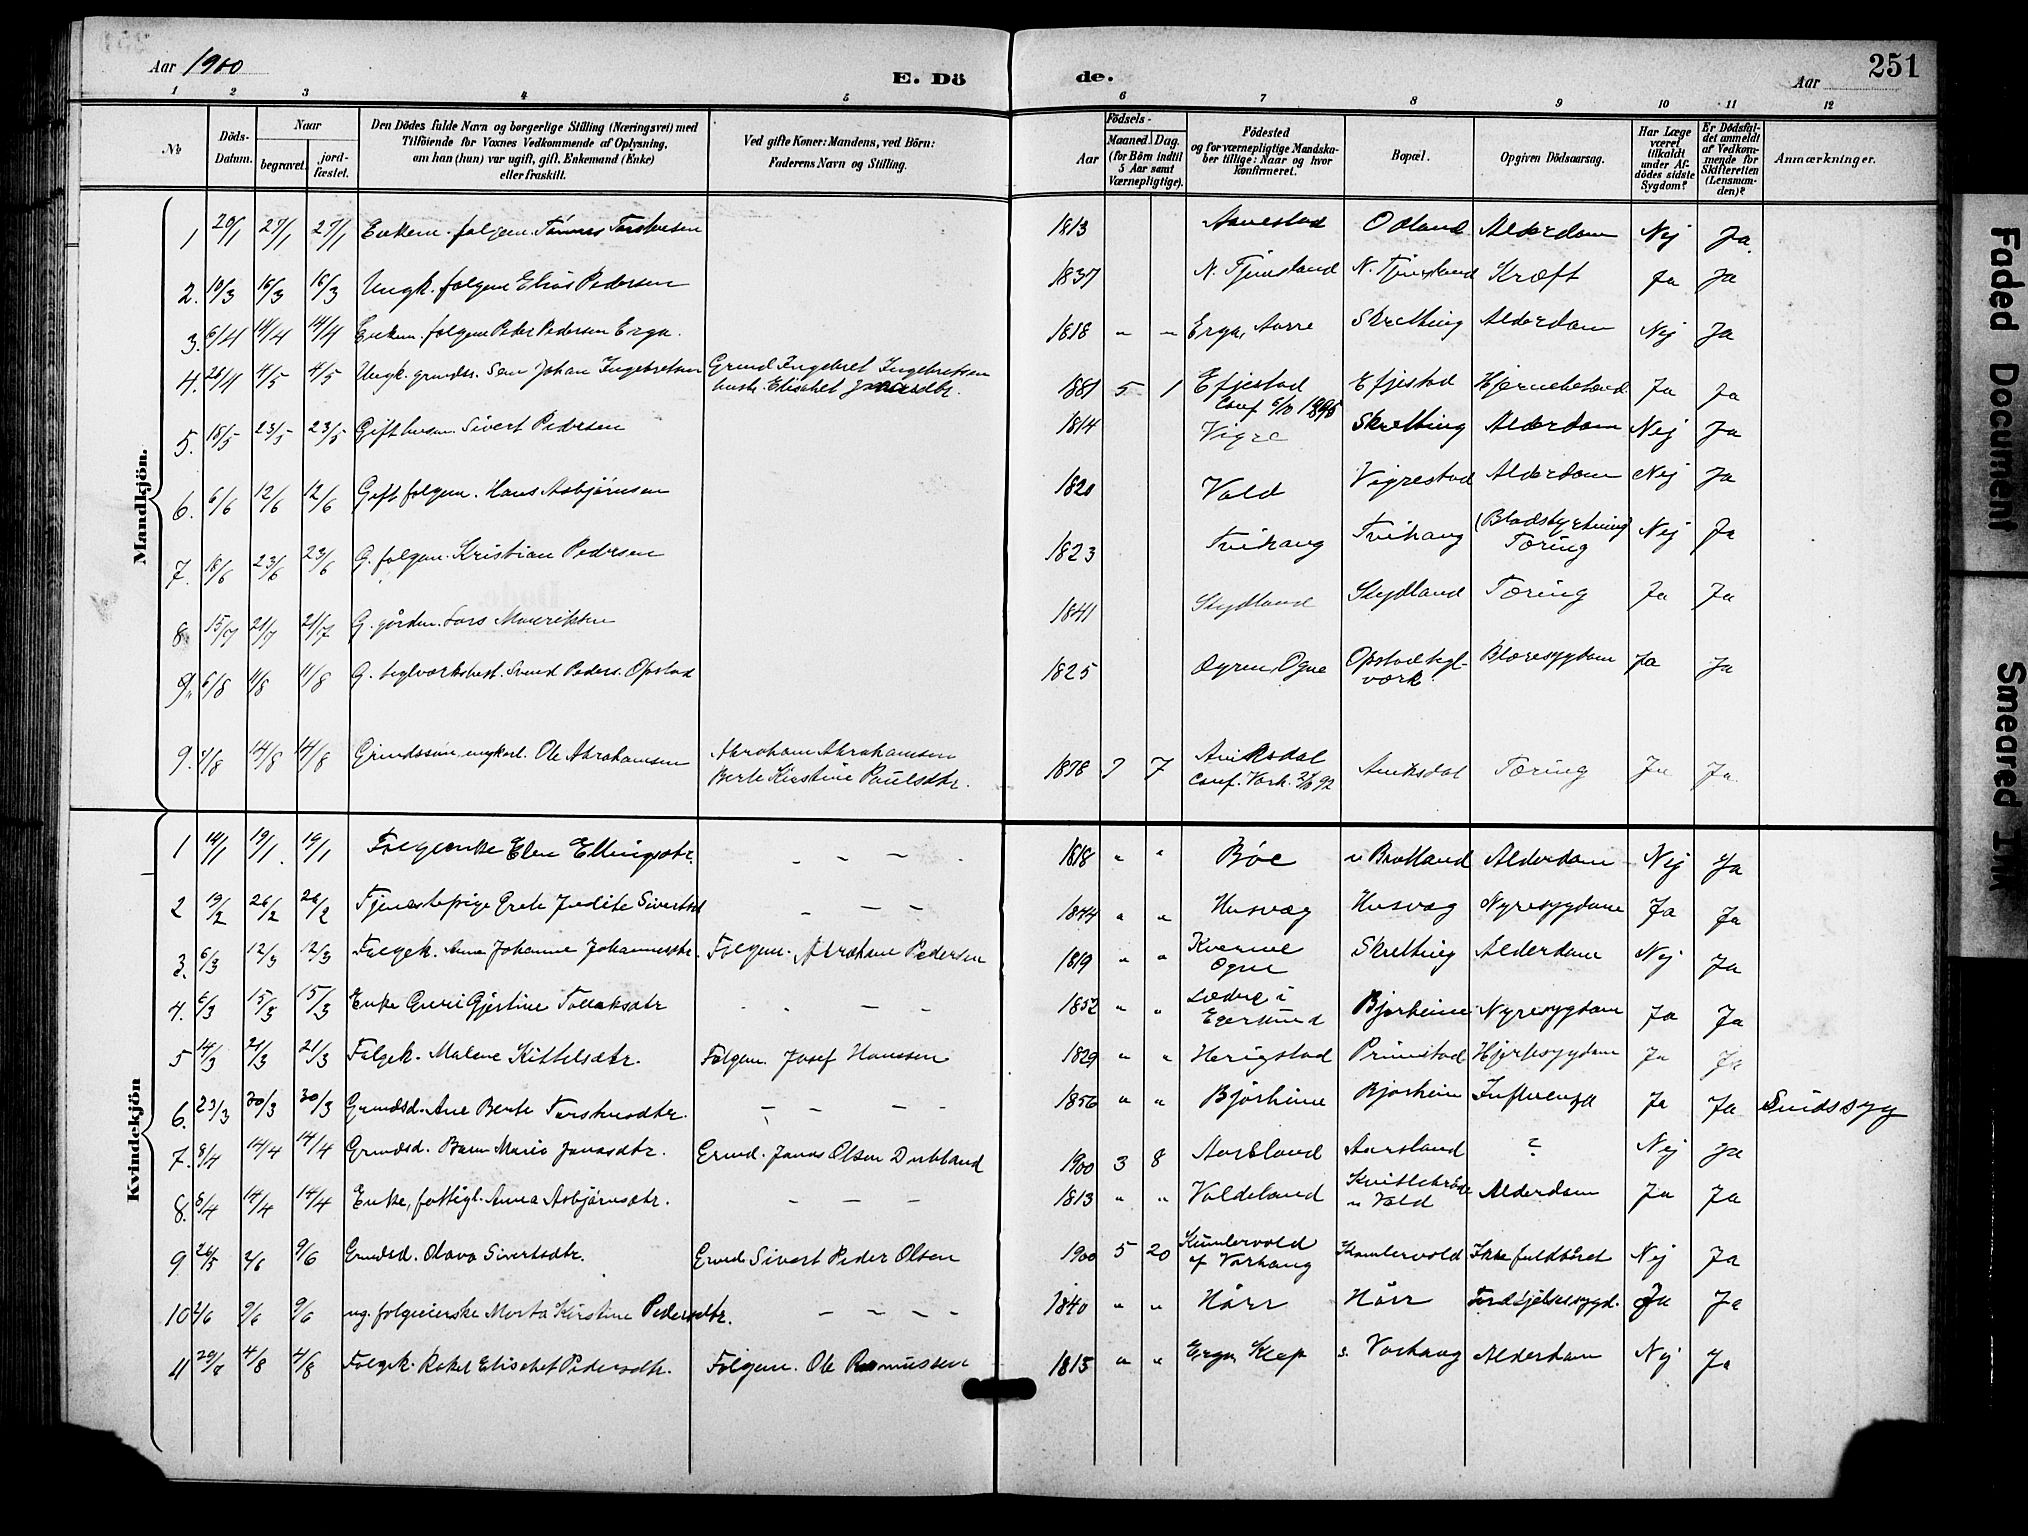 Aar 1900 E. Dö de. Aar 251
1 2 3 4 5 6 7 8 9 10 11 12
No Döds-Datum. Naar begravet. jordfæstet. Den Dödes fulde Navn og borgerlige Stilling (Næringsvei) med Tilföiende for Voxnes Vedkommende af Oplysning, om han (hun) var ugift, gift, Enkemand (Enke) eller fraskilt. Ved gifte Koner: Mandens, ved Börn: Faderens Navn og Stilling. Födsels- Aar Maaned. Dag. (for Börn indtil 5 Aar samt Værnepligtige). Födested og for værnepligtige Mandskaber tillige: Naar og hvor konfirmeret. Bopæl. Opgiven Dödsaarsag. Har Læge været tilkaldt under Afdödes sidste Sygdom? Er Dödsfaldet anmeldt af Vedkommende for Skifteretten (Lensmanden)? Anmærkninger.
Mandkjön.
1 20/1 27/1 27/1 Enkem. folgem. Tönnes 1813 Odland Alderdom Nej Ja
2. 10/3 16/3 16/3 Ungk. folgem Elias Pedersen 1837 N. Tjemsland N. Tjemsland Kræft Ja Ja
3. 6/4 14/4 14/4 Enkem. folgem Peder Pedersen Erga. 1818 " " Erga, Skretting Alderdom Nej Ja
4. 4/5 4/5 Ungk. grundbr. Søn Johan Ingebretsen Grund. Ingebret Ingebretsen
hustr. Elisabet 1881 5 1 Efjestad Efjestad Ja Ja
Conf 1896
5. 18/5 23/5 23/5 Gift husm. Sivert Pedersen 1814 Vigre Skretting Alderdom Nej Ja
6. 6/6 12/6 12/6 Gift folgem. Hans Asbjörnsen 1820 Vold Vigrestad Alderdom Nej Ja
7. 18/6 23/6 23/6 G. folgem. Kristian Pedersen 1823 Tvihaug Tvihaug (Blodstyrtning) Tæring Nej Ja
8. 15/7 21/7 21/7 G. gårdm. Lars Mauritsen 1841 Stydland Tæring Ja Ja
9. 6/8 11/8 11/8 G. teglværksbest. Svend Peders. Opstad 1825 Ogne Opstad tegl-
værk Blæresygdom Ja Ja
9. 14/8 14/8 ungkarl. Ole Abrahamsen Abraham Abrahamsen
Berte Kirstine Paulsdtr. 1878 7 7 Aniksdal Aniksdal Tæring Ja Ja
Conf. Varh. 92
Kvindekjön
1 14/1 19/1 19/1 Folgeenke Elen Ellingsdtr. - - - - 1818 " " Bøe Alderdom Nej Ja
2 19/2 26/2 26/2 Tjenestepige Grete Judite Sivertsd - - - 1844 " " Husvæg Husvæg Nyresygdom Ja Ja
3. 6/3 12/3 12/3 Folgek. Anna Johanne Johannesdtr. Folgem. Abraham Pedersen 1819 " " Kverme
Ogne Skretting Alderdom Nej Ja
4. 6/3 15/3 15/3 Enke Guri Gjertine Tollaksdtr - - - - 1852 " " i
Egersund Bjorheim Nyresygdom Ja Ja
5 14/3 21/3 21/3 Folgek. Malene Kittelsdtr. Folgem. Josef Hanssen 1829 " " Herigstad Primstad Hjertesygdom Ja Ja
6. 23/3 30/3 30/3 Grundsd. Ane Berte Torstensdtr. - - - - 1856 " " Bjorheim Bjorheim Influenza Ja Ja Sindssyg
7. 8/4 14/4 14/4 Grundsd. Barn Marie Jonasdtr. Grund. Jonas Olsen Dubland 1900 3 8 Aarsland Aarsland ? Nej Ja
8. 8/4 14/4 14/4 Enke, fattigl. Anna Asbjörnsdtr. - - - 1813 " " Voldeland
Vold Alderdom Ja Ja
9 26/5 9/6 Grundsd. Olava Sivertsdtr. Grund. Sivert Peder Olsen 1900 5 20 Kumlervold
af Varhaug Kumlervold Ikke fuldbåret Nej Ja
10 2/6 9/6 9/6 ug. folgeierske Marta Kirstine Pedersdtr. - - - - 1840 " " Hårr Hårr Ja Ja
11 4/8 4/8 Folgek. Rakel Elisabet Pedersdtr. Folgem. Ole Rasmussen 1815 " " Erga, Klep s. Varhaug Alderdom Nej Ja
Faded Document
Smeared Ink